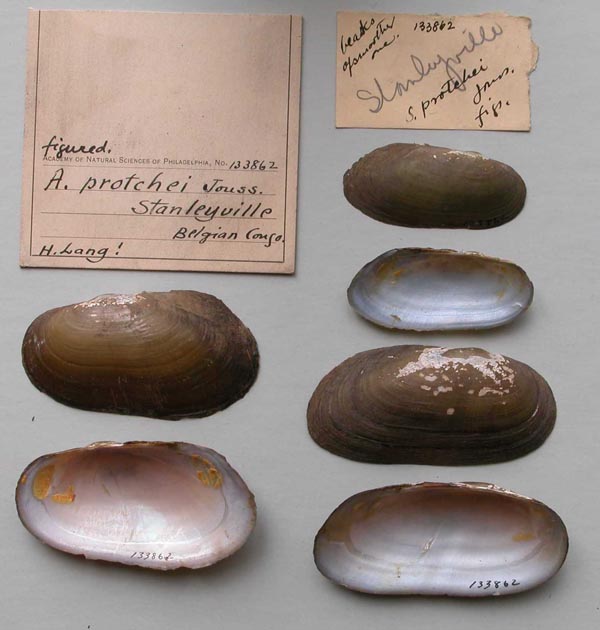 figured.
ACADEMY OF NATURAL SCIENCES OF PHILADELPHIA, No. 133862
A. protchei Jouss.
Stanleyville
Belgian Congo.
H. Lang!
beaks
of smooth
one.
133862
Stanleyville
S. protchei
Jouss.
figs.
133862
133862